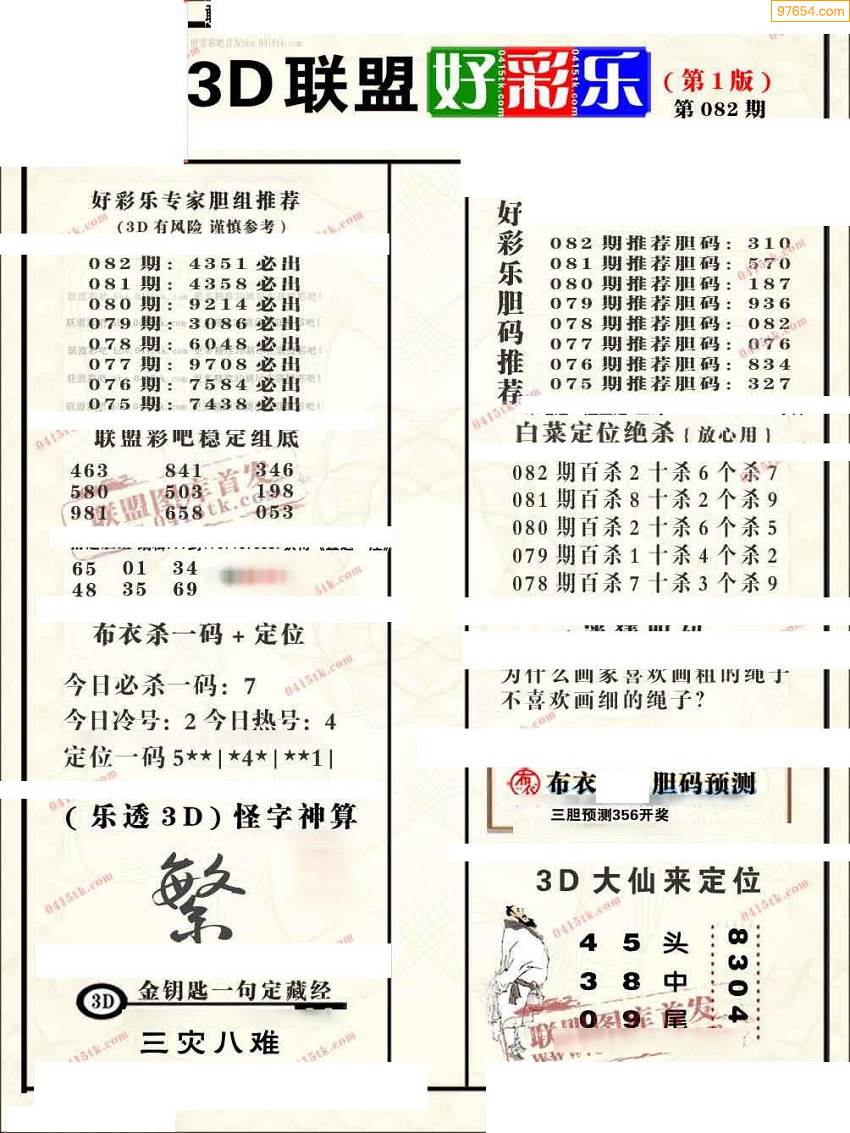 97654.com
3D联盟好彩乐
(第1版)
第082期
好彩乐专家胆组推荐
(3D有风险 谨慎参考)
082期: 4351必出
081期: 4358必出
080期: 9214必出
079期: 3086必出
078期: 6048必出
077期: 9708必出
076期: 7584必出
075期: 7438必出
联盟彩吧稳定组底
463 841 346
580 503 198
981 658 053
65 01 34
48 35 69
布衣杀一码+定位
今日必杀一码: 7
今日冷号: 2 今日热号: 4
定位一码5**|*4*|**1|
(乐透3D)怪字神算
繁
3D 金钥匙一句定藏经
三灾八难
好彩乐胆码推荐
082期推荐胆码: 310
081期推荐胆码: 570
080期推荐胆码: 187
079期推荐胆码: 936
078期推荐胆码: 082
077期推荐胆码: 076
076期推荐胆码: 834
075期推荐胆码: 327
白菜定位绝杀{放心用}
082期百杀2十杀6个杀7
081期百杀8十杀2个杀9
080期百杀2十杀6个杀5
079期百杀1十杀4个杀2
078期百杀7十杀3个杀9
为什么画家喜欢画粗的绳子
不喜欢画细的绳子?
布衣 胆码预测
三胆预测356开奖
3D大仙来定位
4 5 头
3 8 中
0 9 尾
8304
联盟图库首发
0415tk.com